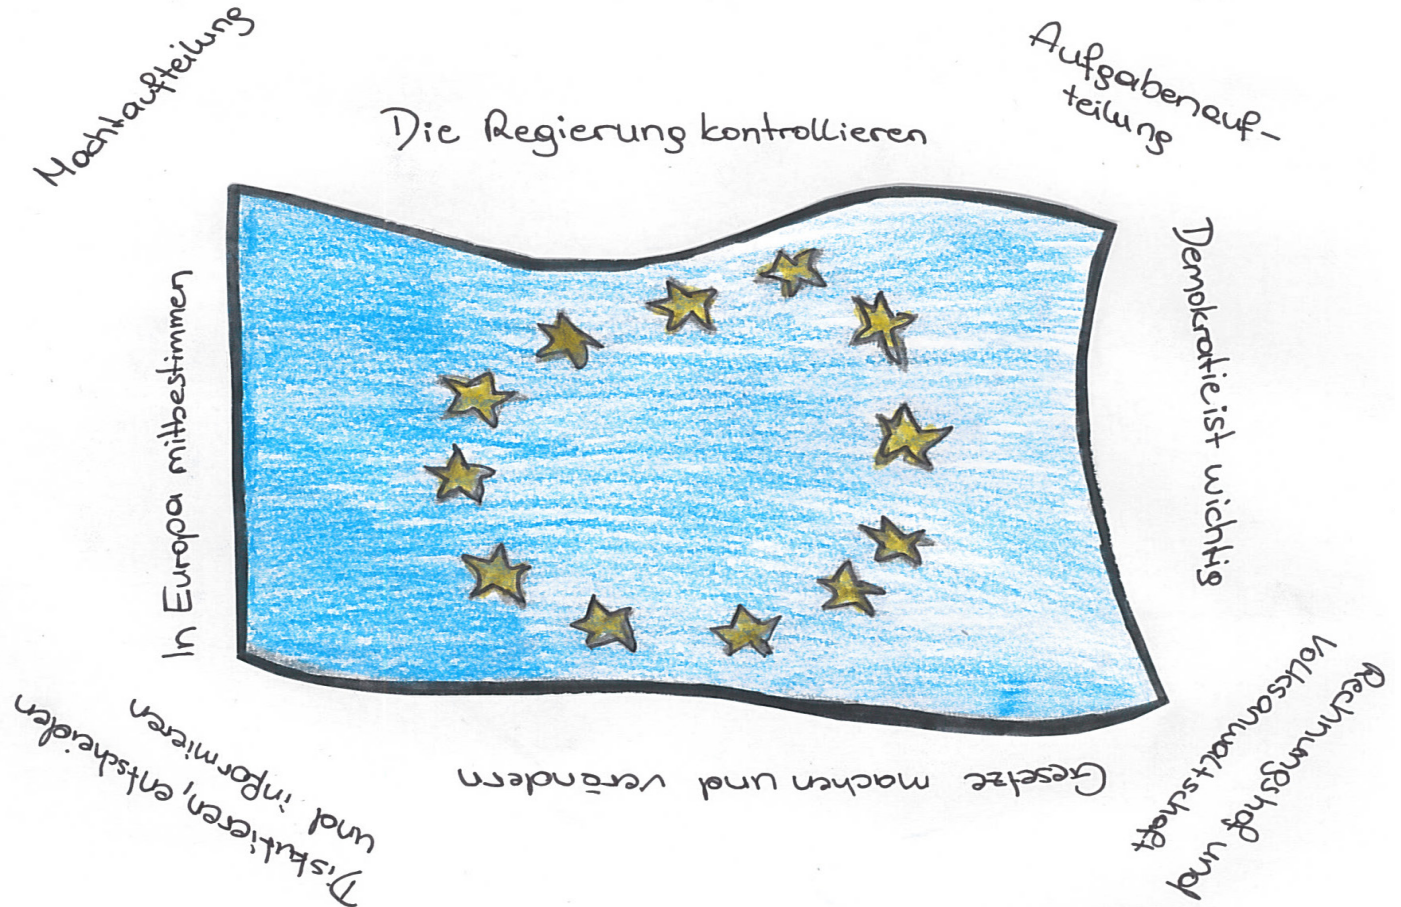 Machtaufteilung
Die Regierung kontrollieren
Aufgabenauf-
teilung
Demokratie ist wichtig
Rechnungshof und
Volksanwaltschaft
Gesetze machen und verändern
Diskutieren, entscheiden
und informieren
In Europa mitbestimmen